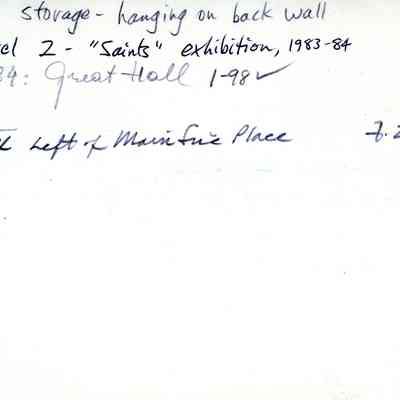 storage - hanging on back wall
2 - "Saints" exhibition, 1983-84
Great Hall 1-98 ✓
Left of Main Fire Place